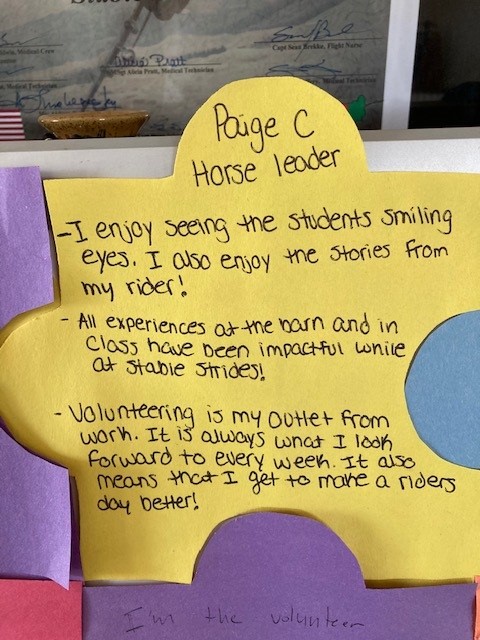 Capt Sean Brekke, Flight Nurse
SSgt Alicia Pratt, Medical Technician
Medical Technician
Paige C
Horse leader
-I enjoy seeing the students smiling
eyes. I also enjoy the stories from
my rider!
- All experiences at the barn and in
class have been impactful while
at stable strides!
- Volunteering is my outlet from
work. It is always what I look
forward to every week. It also
means that I get to make a riders
day better!
I'm the volunteer